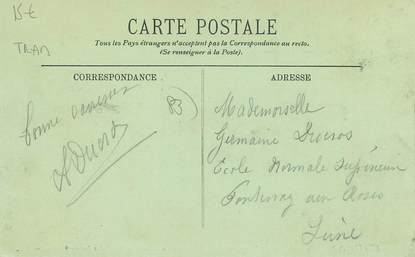 15 €
TRAM
CARTE POSTALE
Tous les Pays étrangers n'acceptent pas la Correspondance au recto.
(Se renseigner à la Poste).
CORRESPONDANCE
bonne
83
ADRESSE
Mademoiselle
Germaine
Ecole Normale Supérieure
Fontenay aux Roses
Seine